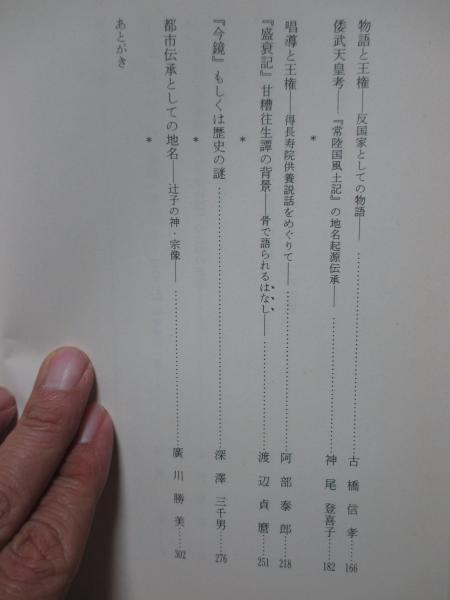 物語と王権――反国家としての物語――……………………古橋信孝……166
倭武天皇考――『常陸国風土記』の地名起源伝承――……………………神尾登喜子……182
*
唱導と王権――得長寿院供養説話をめぐりて――……………………阿部泰郎……218
『盛衰記』甘糟往生譚の背景――骨で語られるはなし――……………………渡辺貞麿……251
*
『今鏡』もしくは歴史の謎……………………深澤三千男……276
*
都市伝承としての地名――辻子の神・宗像――……………………廣川勝美……302
*
あとがき